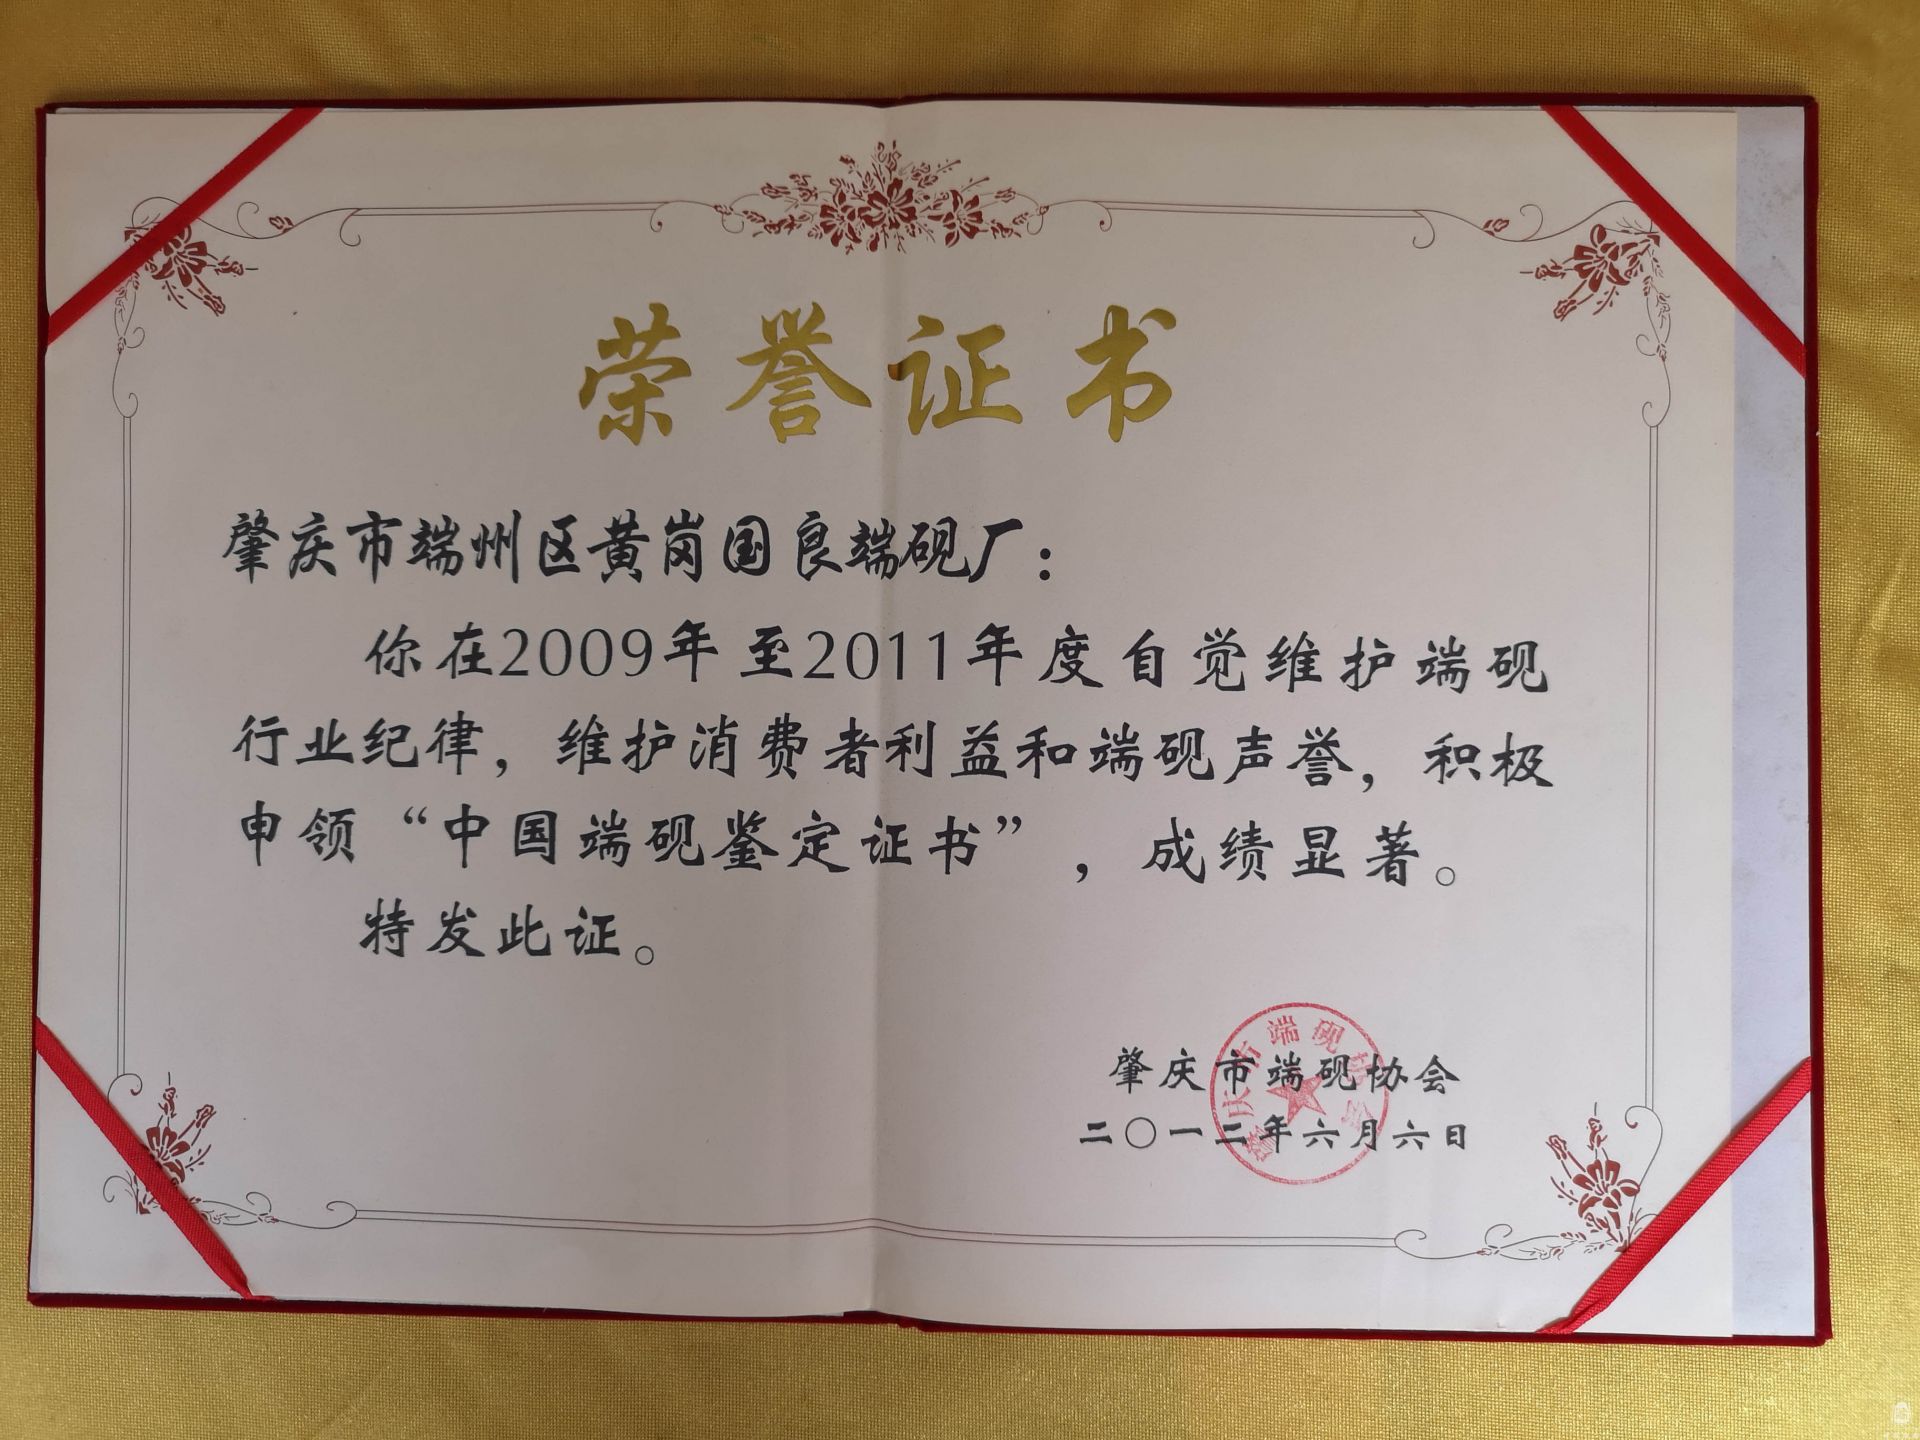 荣誉证书
肇庆市端州区黄岗国良端砚厂：
你在2009年至2011年度自觉维护端砚
行业纪律，维护消费者利益和端砚声誉，积极
申领“中国端砚鉴定证书”，成绩显著。
特发此证。
肇庆市端砚协会
肇庆市端砚协会
二〇一二年六月六日